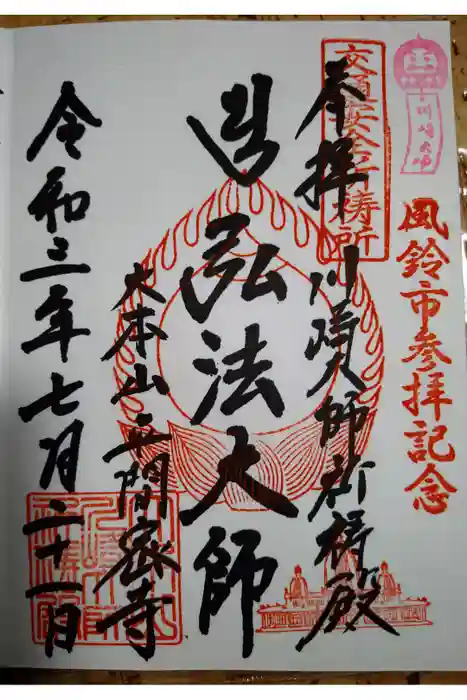 風鈴市参拝記念
川崎大師
交通安全祈祷所
奉拝
川崎大師祈祷殿
弘法大師
大本山平間寺
令和三年七月二十一日